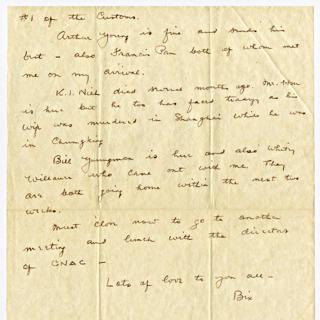 #1 of the Customs.
Arthur Young is fine and sends his
best - also Francis Pan both of whom met
me on my arrival.
K.I. Nieh died several months ago. Mr. Wen
is here but he too has faced tragedy as his
wife was murdered in Shanghai while he was
in Chungking
Bill Youngman is here and also Whitey
Willauer who came out with me. They
are both going home within the next two
weeks.
Must close now to go to another
meeting and lunch with the directors
of CNAC -
Lots of love to you all -
Bix